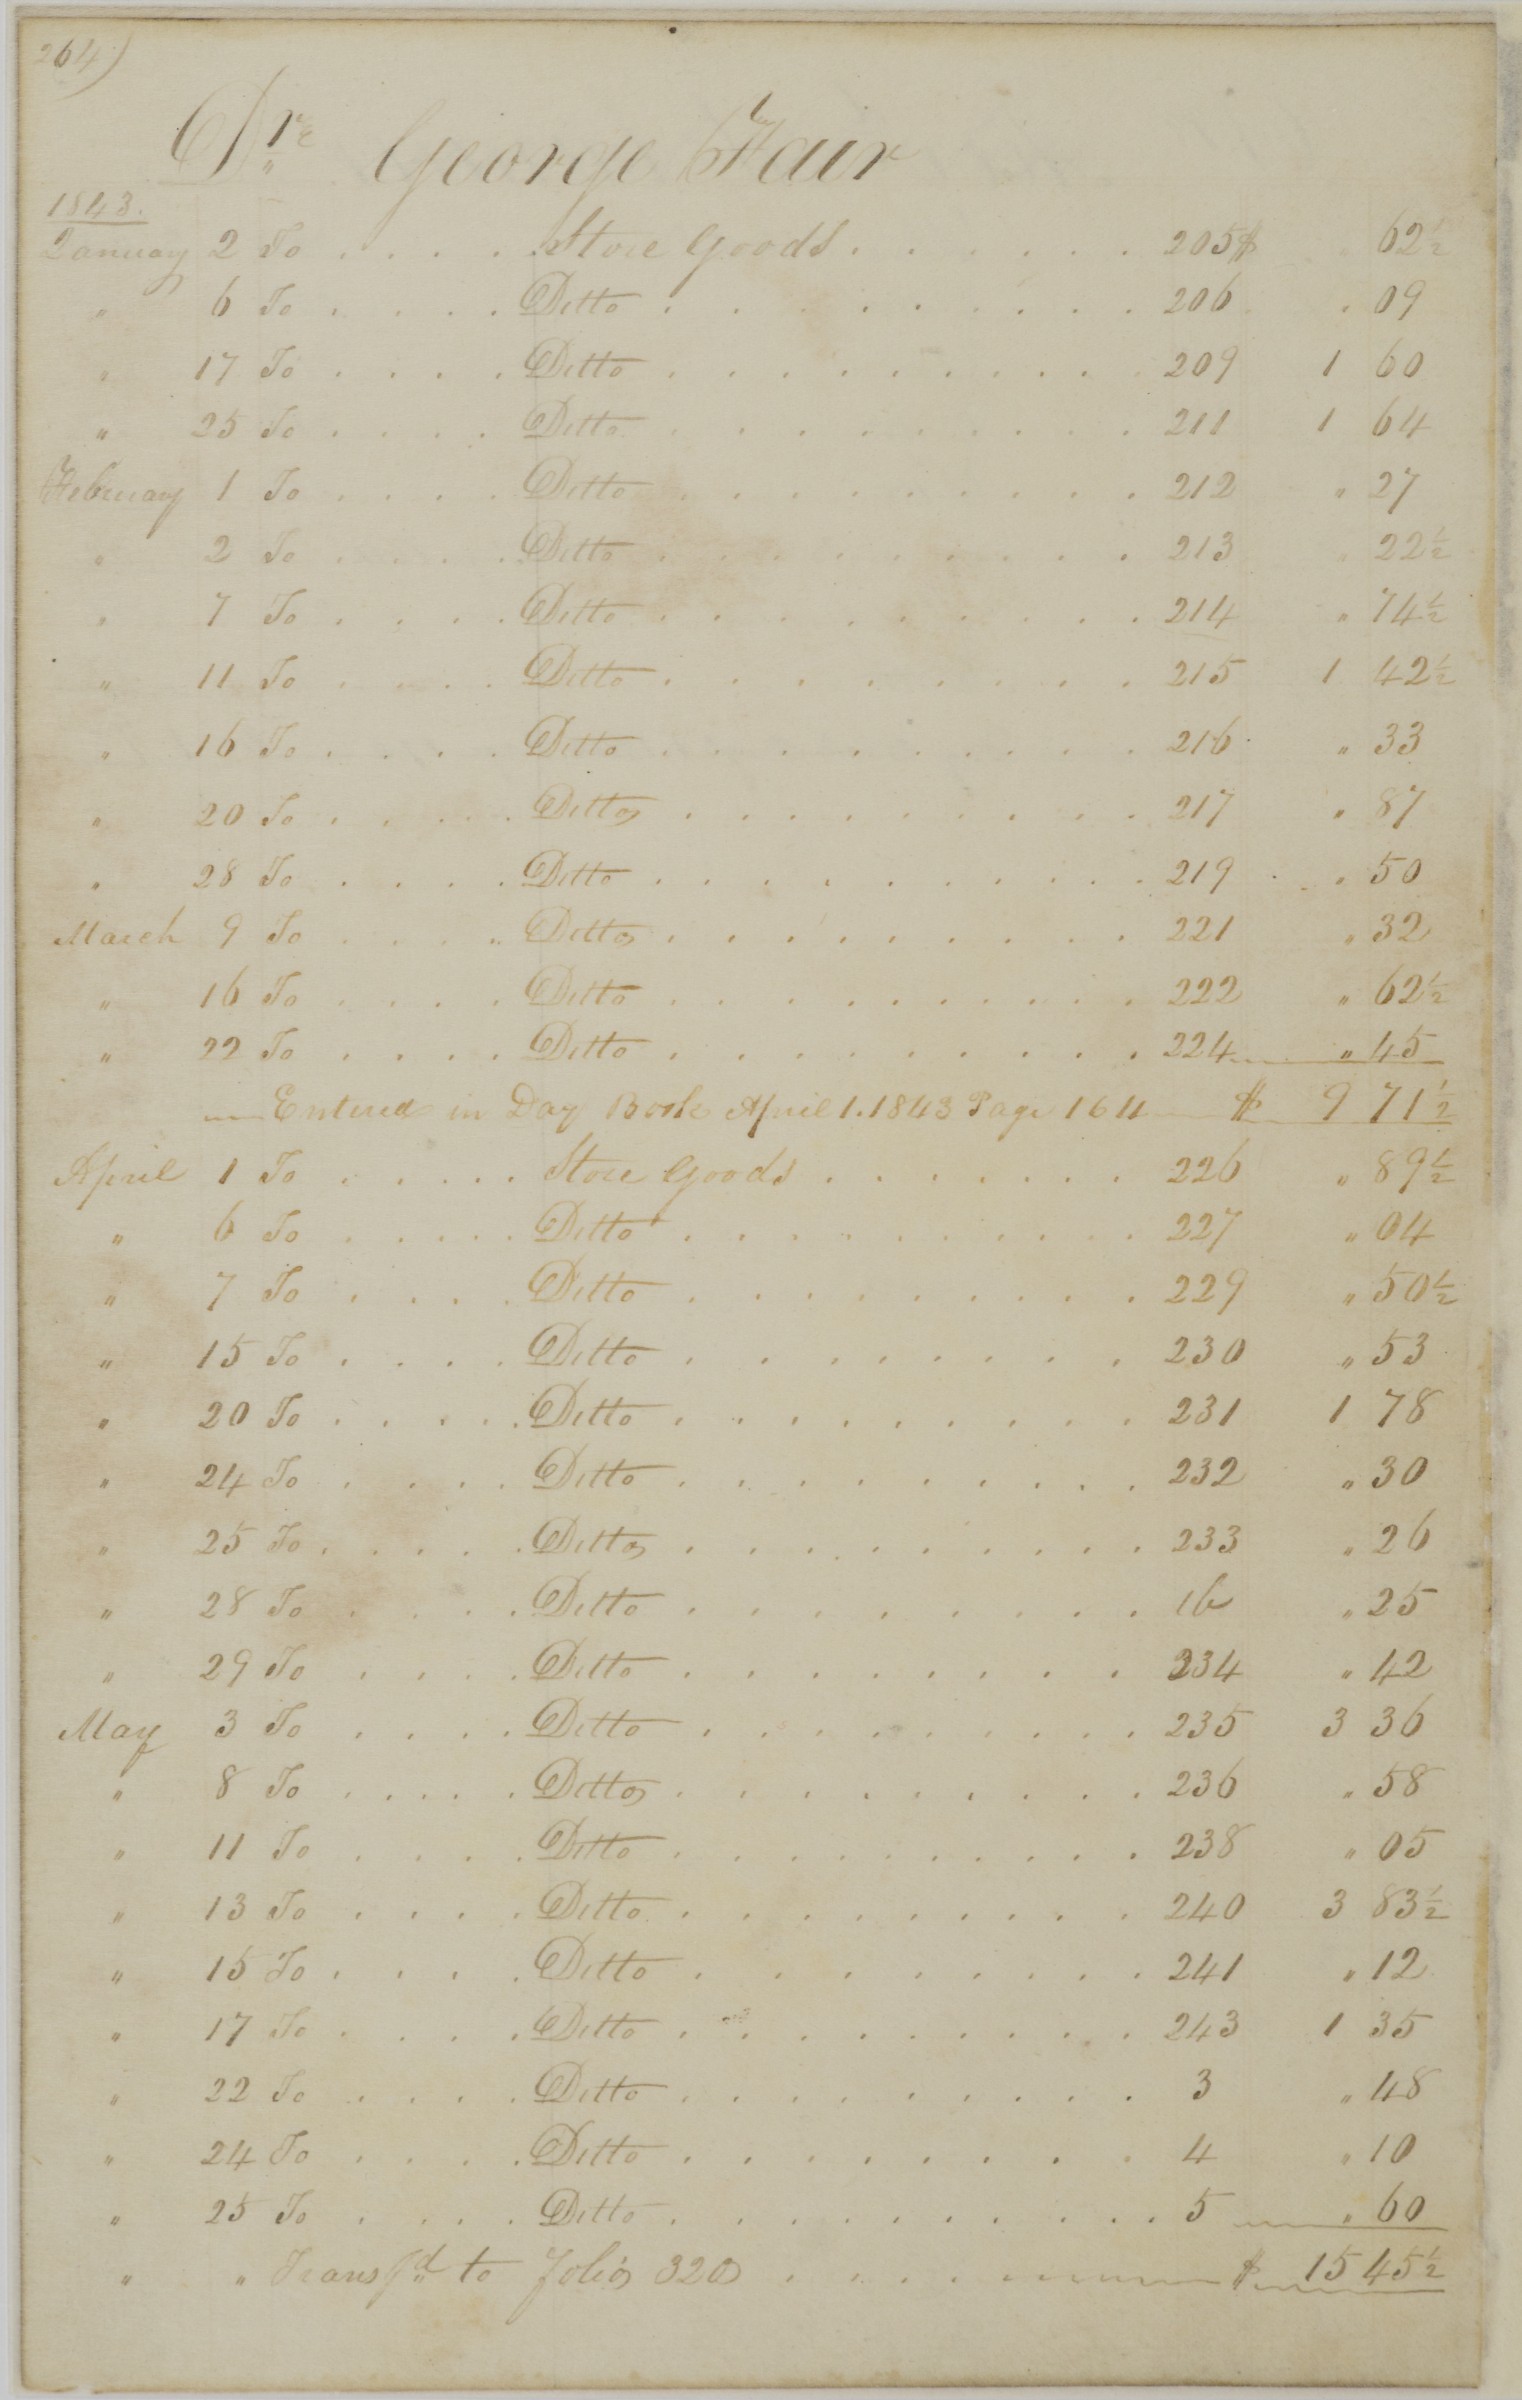 264)
Dr. George Fair
1843.
January 2 To . . . . . Store Goods . . . . . . 205 $ " 62½
" 6 To . . . . Ditto . . . . . . . . . 206 " 09
" 17 To . . . . Ditto . . . . . . . . . 209 1 60
" 25 To . . . . Ditto . . . . . . . . . 211 1 64
February 1 To . . . . Ditto . . . . . . . . . 212 " 27
" 2 To . . . . Ditto . . . . . . . . . 213 " 22½
" 7 To . . . . Ditto . . . . . . . . . 214 " 74½
" 11 To . . . . Ditto . . . . . . . . . 215 1 42½
" 16 To . . . . Ditto . . . . . . . . . 216 " 33
" 20 To . . . . Ditto . . . . . . . . . 217 " 87
" 28 To . . . . Ditto . . . . . . . . . 219 " 50
March 9 To . . . . Ditto . . . . . . . . . 221 " 32
" 16 To . . . . Ditto . . . . . . . . . 222 " 62½
" 22 To . . . . Ditto . . . . . . . . . 224 " 45
Entered in Day Book April 1. 1843 Page 164 $ 9 71½
April 1 To . . . . . Store Goods . . . . . . 226 " 89½
" 6 To . . . . . Ditto . . . . . . . . . 227 " 04
" 7 To . . . . Ditto . . . . . . . . . 229 " 50½
" 15 To . . . . Ditto . . . . . . . . . 230 " 53
" 20 To . . . . . Ditto . . . . . . . . . 231 1 78
" 24 To . . . . Ditto . . . . . . . . . 232 " 30
" 25 To . . . . . Ditto . . . . . . . . . 233 " 26
" 28 To . . . . Ditto . . . . . . . . . ib " 25
" 29 To . . . . Ditto . . . . . . . . . 234 " 42
May 3 To . . . . Ditto . . . . . . . . . 235 3 36
" 8 To . . . . . Ditto . . . . . . . . . 236 " 58
" 11 To . . . . Ditto . . . . . . . . . 238 " 05
" 13 To . . . . Ditto . . . . . . . . . 240 3 83½
" 15 To . . . . Ditto . . . . . . . . . 241 " 12
" 17 To . . . . Ditto . . . . . . . . . 243 1 35
" 22 To . . . . Ditto . . . . . . . . . 3 " 48
" 24 To . . . . Ditto . . . . . . . . . 4 " 10
" 25 To . . . . Ditto . . . . . . . . . 5 " 60
" " Transfd to folio 320 . . . . $ 15 45½